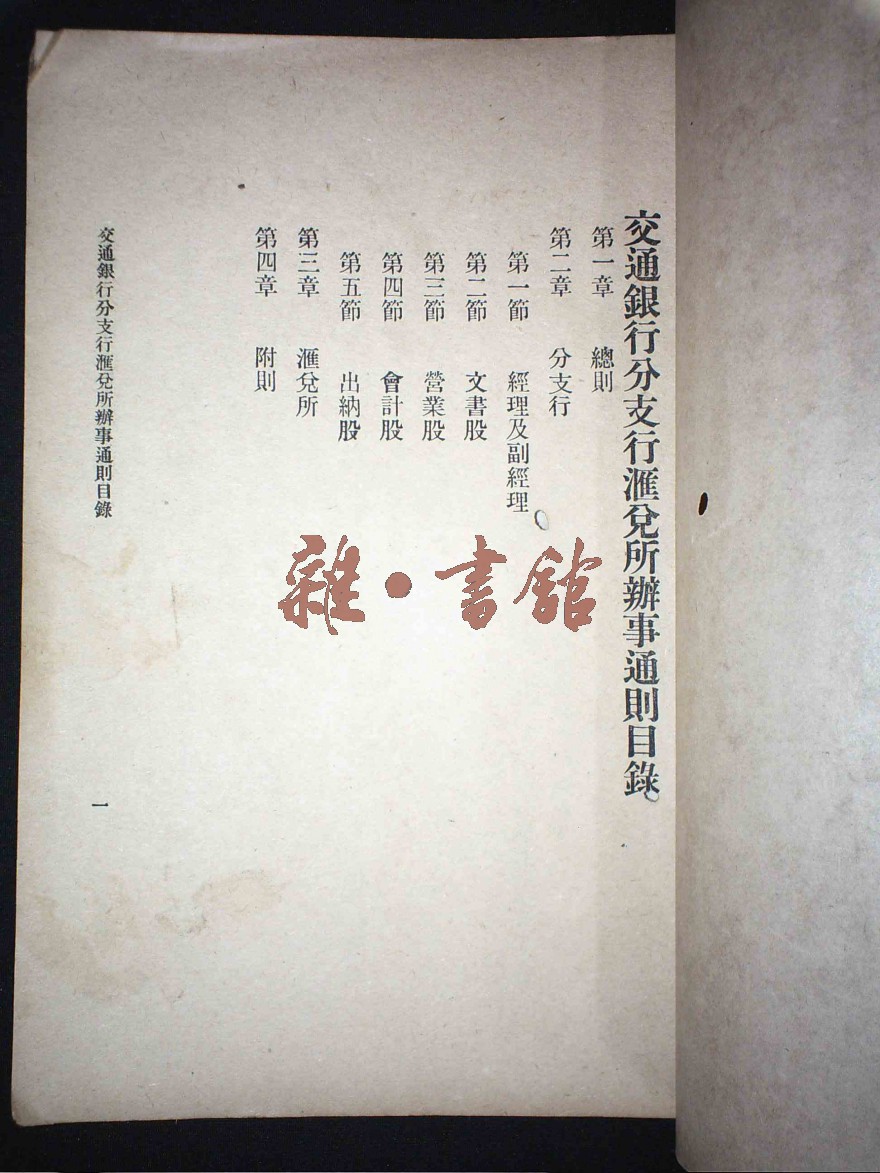 交通銀行分支行滙兌所辦事通則目錄
第一章　總則
第二章　分支行
第一節　經理及副經理
第二節　文書股
第三節　營業股
第四節　會計股
第五節　出納股
第三章　滙兌所
第四章　附則
交通銀行分支行滙兌所辦事通則目錄
一
雜・書館